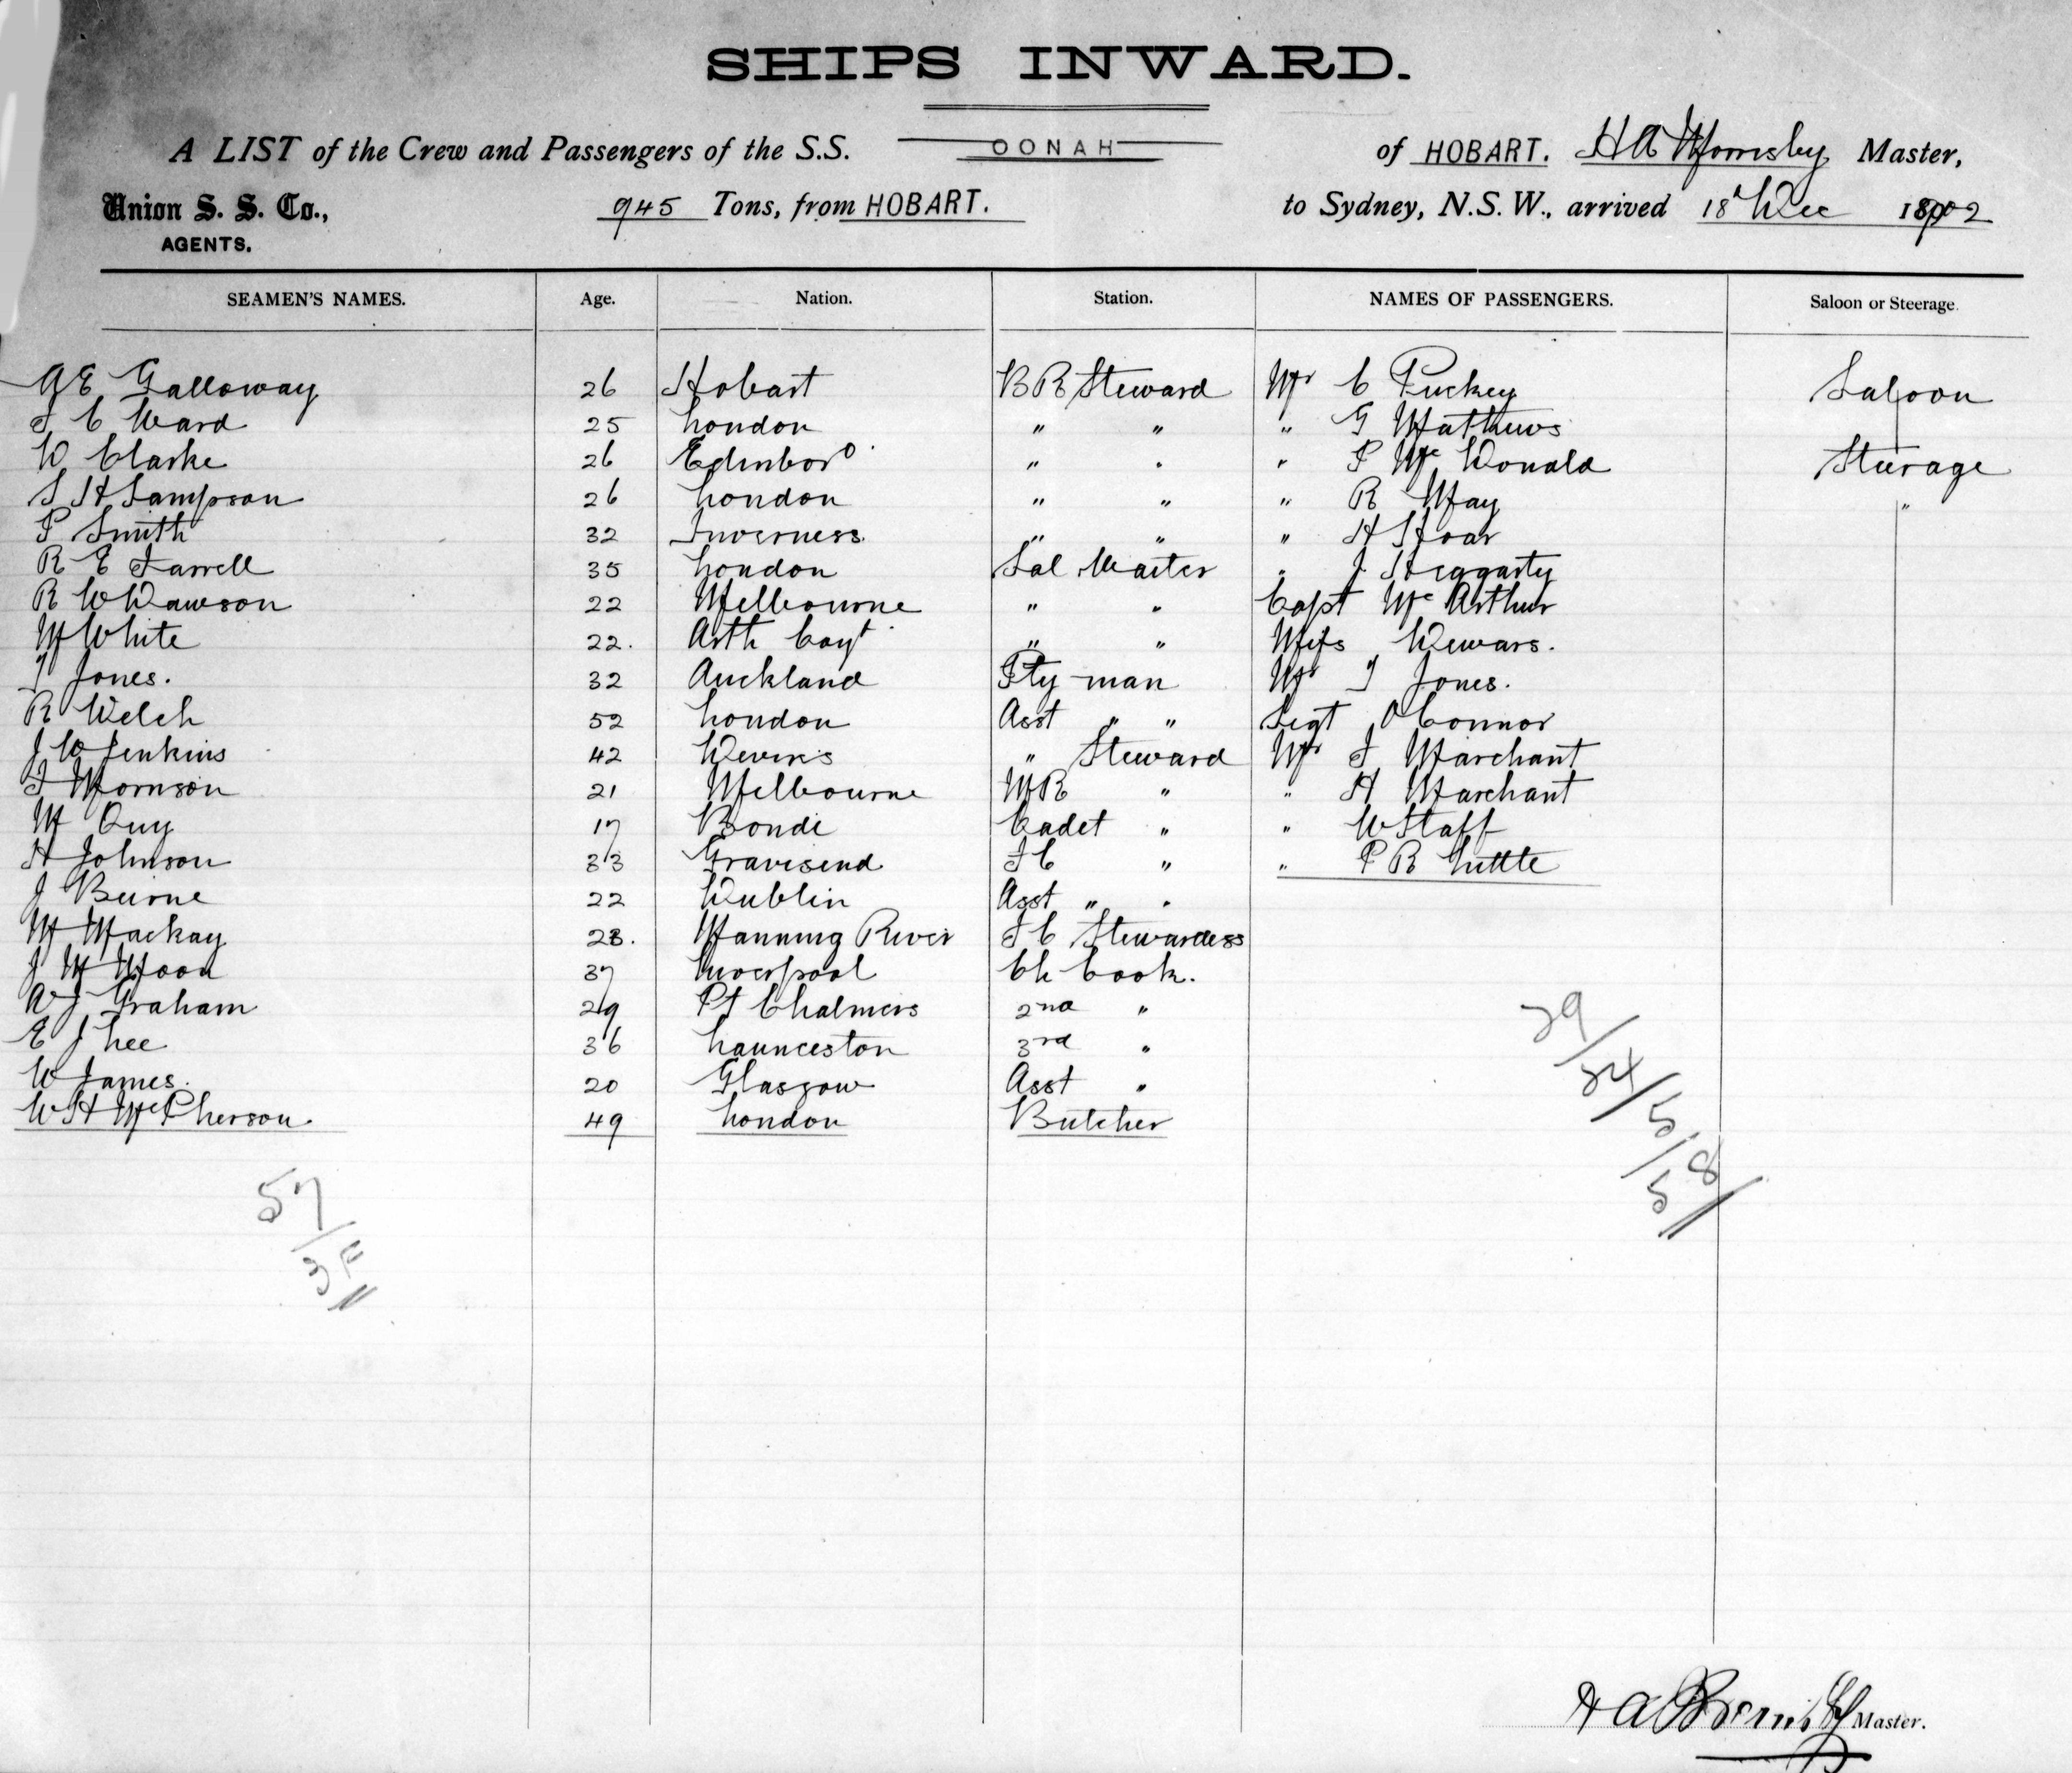 SHIPS INWARD.
A LIST of the Crew and Passengers of the S.S. OONAH of HOBART. H A Mornisby Master,
Union S. S. Co., 945 Tons, from HOBART. to Sydney, N.S.W., arrived 18th Dec 1902
AGENTS.
SEAMEN'S NAMES. Age. Nation. Station. NAMES OF PASSENGERS. Saloon or Steerage.
A E Galloway 26 Hobart B R Steward Mr C Puckey Saloon
F C Ward 25 London " " " G Mathews
W Clarke 26 Edinboro " " " P McDonald Steerage
S H Sampson 26 London " " " R May "
P Smith 32 Inverness " " " H Hoar
R E Farrell 35 London Sal Waiter " J Heggarty
R W Dawson 22 Melbourne " " Capt McArthur
M White 22. " " Miss Dewars.
T Jones. 32 Auckland Pty man Mr T Jones.
R Welch 52 London Asst " " Segt O Connor
J W Jenkins 42 " Steward Mr F Marchant
F Morrison 21 Melbourne M R " " H Marchant
M Quy 17 Bondi Cadet " " W Staff
H Johnson 33 Gravesend F C " " P R Little
J Burne 22 Dublin Asst " "
M Mackay 28. Manning River F C Stewardess
J M Moon 37 Liverpool Ch Cook.
A J Graham 29 Pt Chalmers 2nd "
E J Lee 36 Launceston 3rd "
W James. 20 Glasgow Asst "
W H McPherson. 49 London Butcher
57/3F
29/24/5/58/
Master.